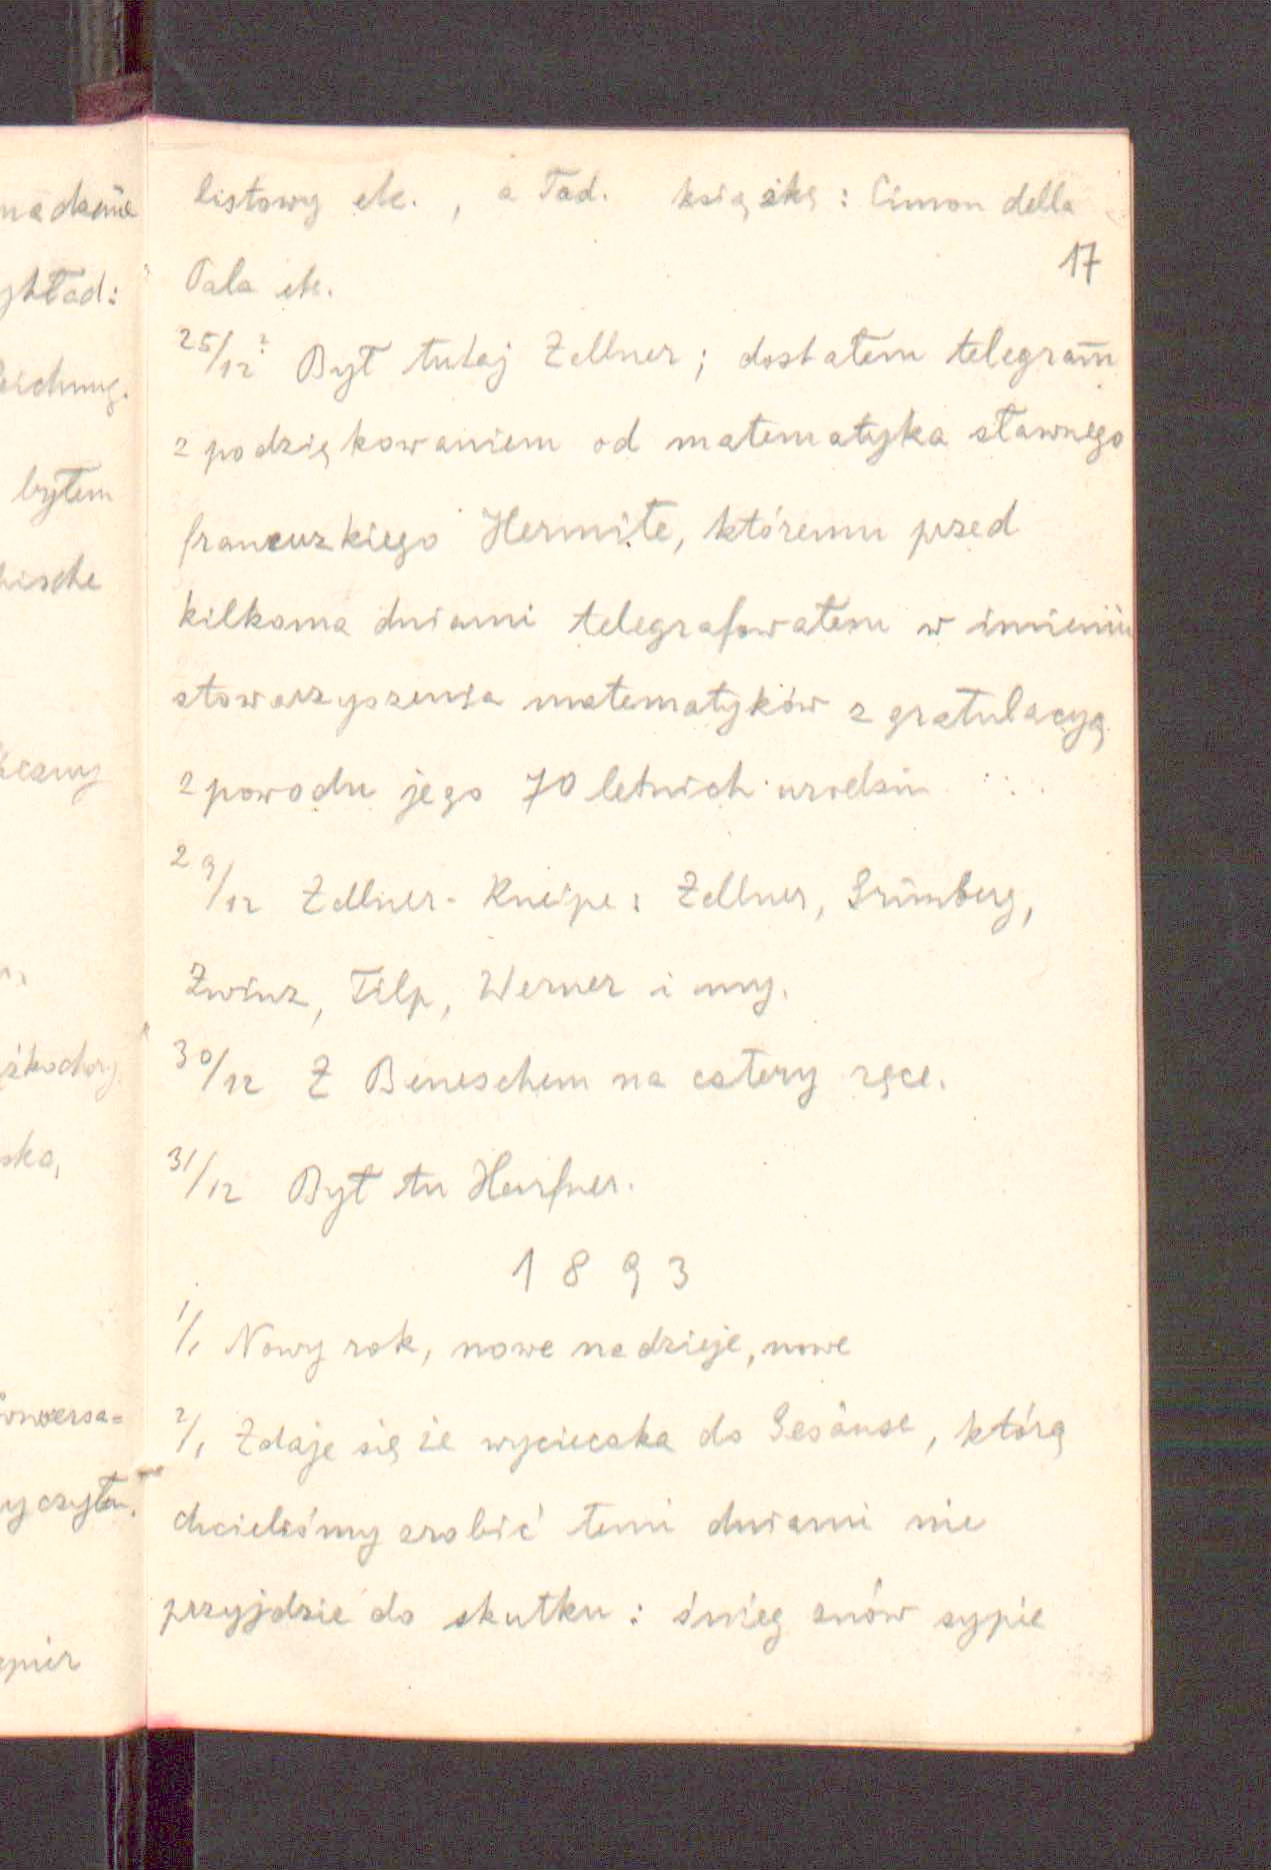 listowy etc., a Tad. książkę: Cimon della
17
Pala etc.
25/12? Był tutaj Zellner; dostałem telegram
z podziękowaniem od matematyka sławnego
francuzkiego Hermite, któremu przed
kilkoma dniami telegrafowałem w imieniu
stowarzyszenia matematyków z gratulacyą
z powodu jego 70 letnich urodzin
29/12 Zellner-Kneipe: Zellner, Grünberg,
Zwinz, Tilp, Werner i my.
30/12 Z Beneschem na cztery ręce.
31/12 Był tu Harfner.
1893
1/1 Nowy rok, nowe nadzieje, nowe
2/1 Zdaje się że wycieczka do Gesäuse, którą
chcieliśmy zrobić temi dniami nie
przyjdzie do skutku: śnieg znów sypie
ykład:
byłem